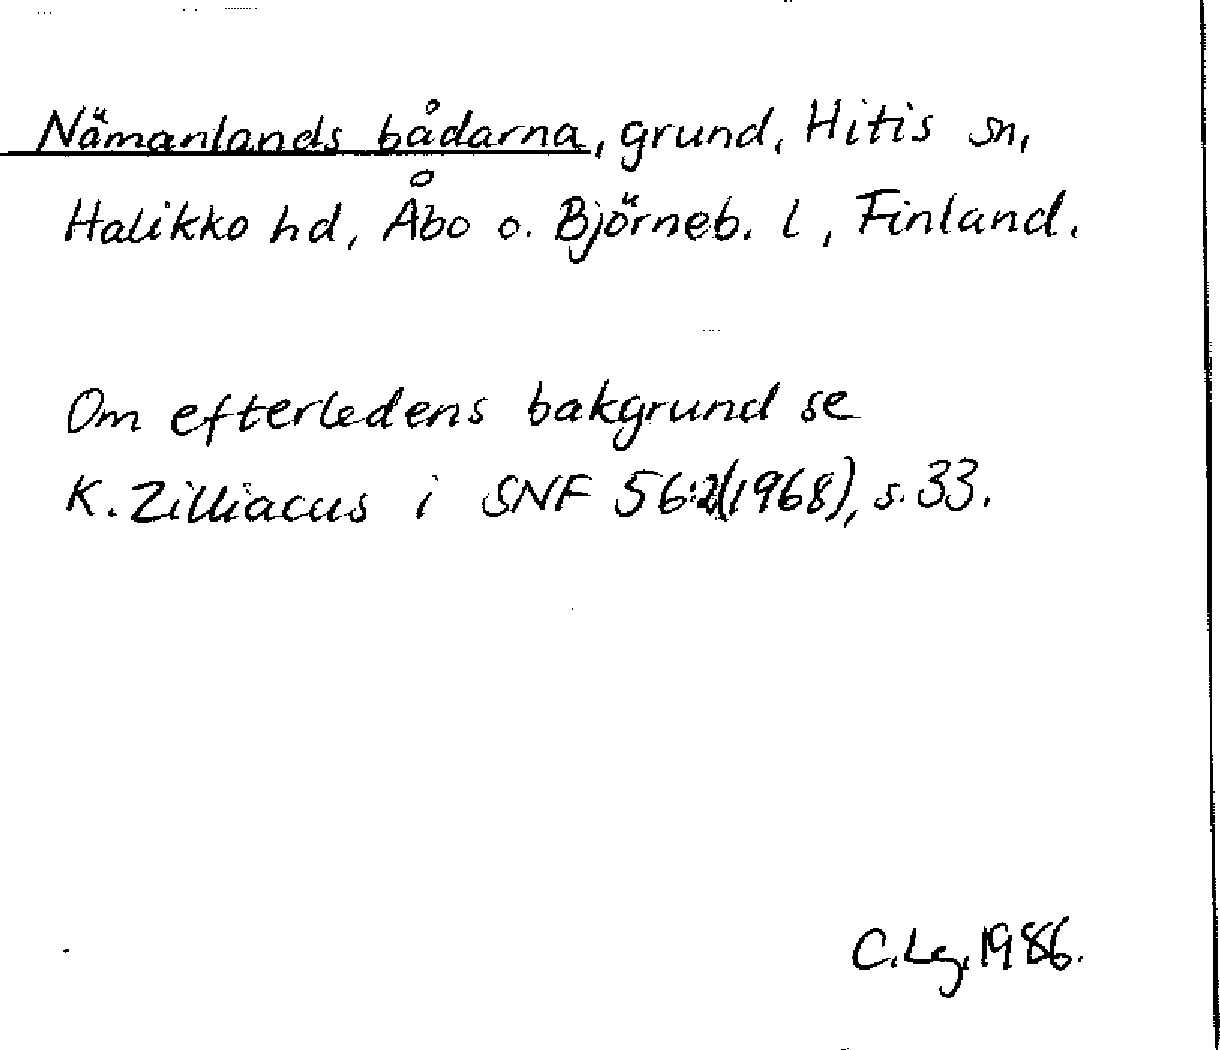 Nämanlands bådarna, grund, Hitis sn,
Halikko hd, Åbo o. Björneb. l, Finland.
Om efterledens bakgrund se
K. Zilliacus i SNF 56:2(1968), s. 33.
C. Lg. 1986.